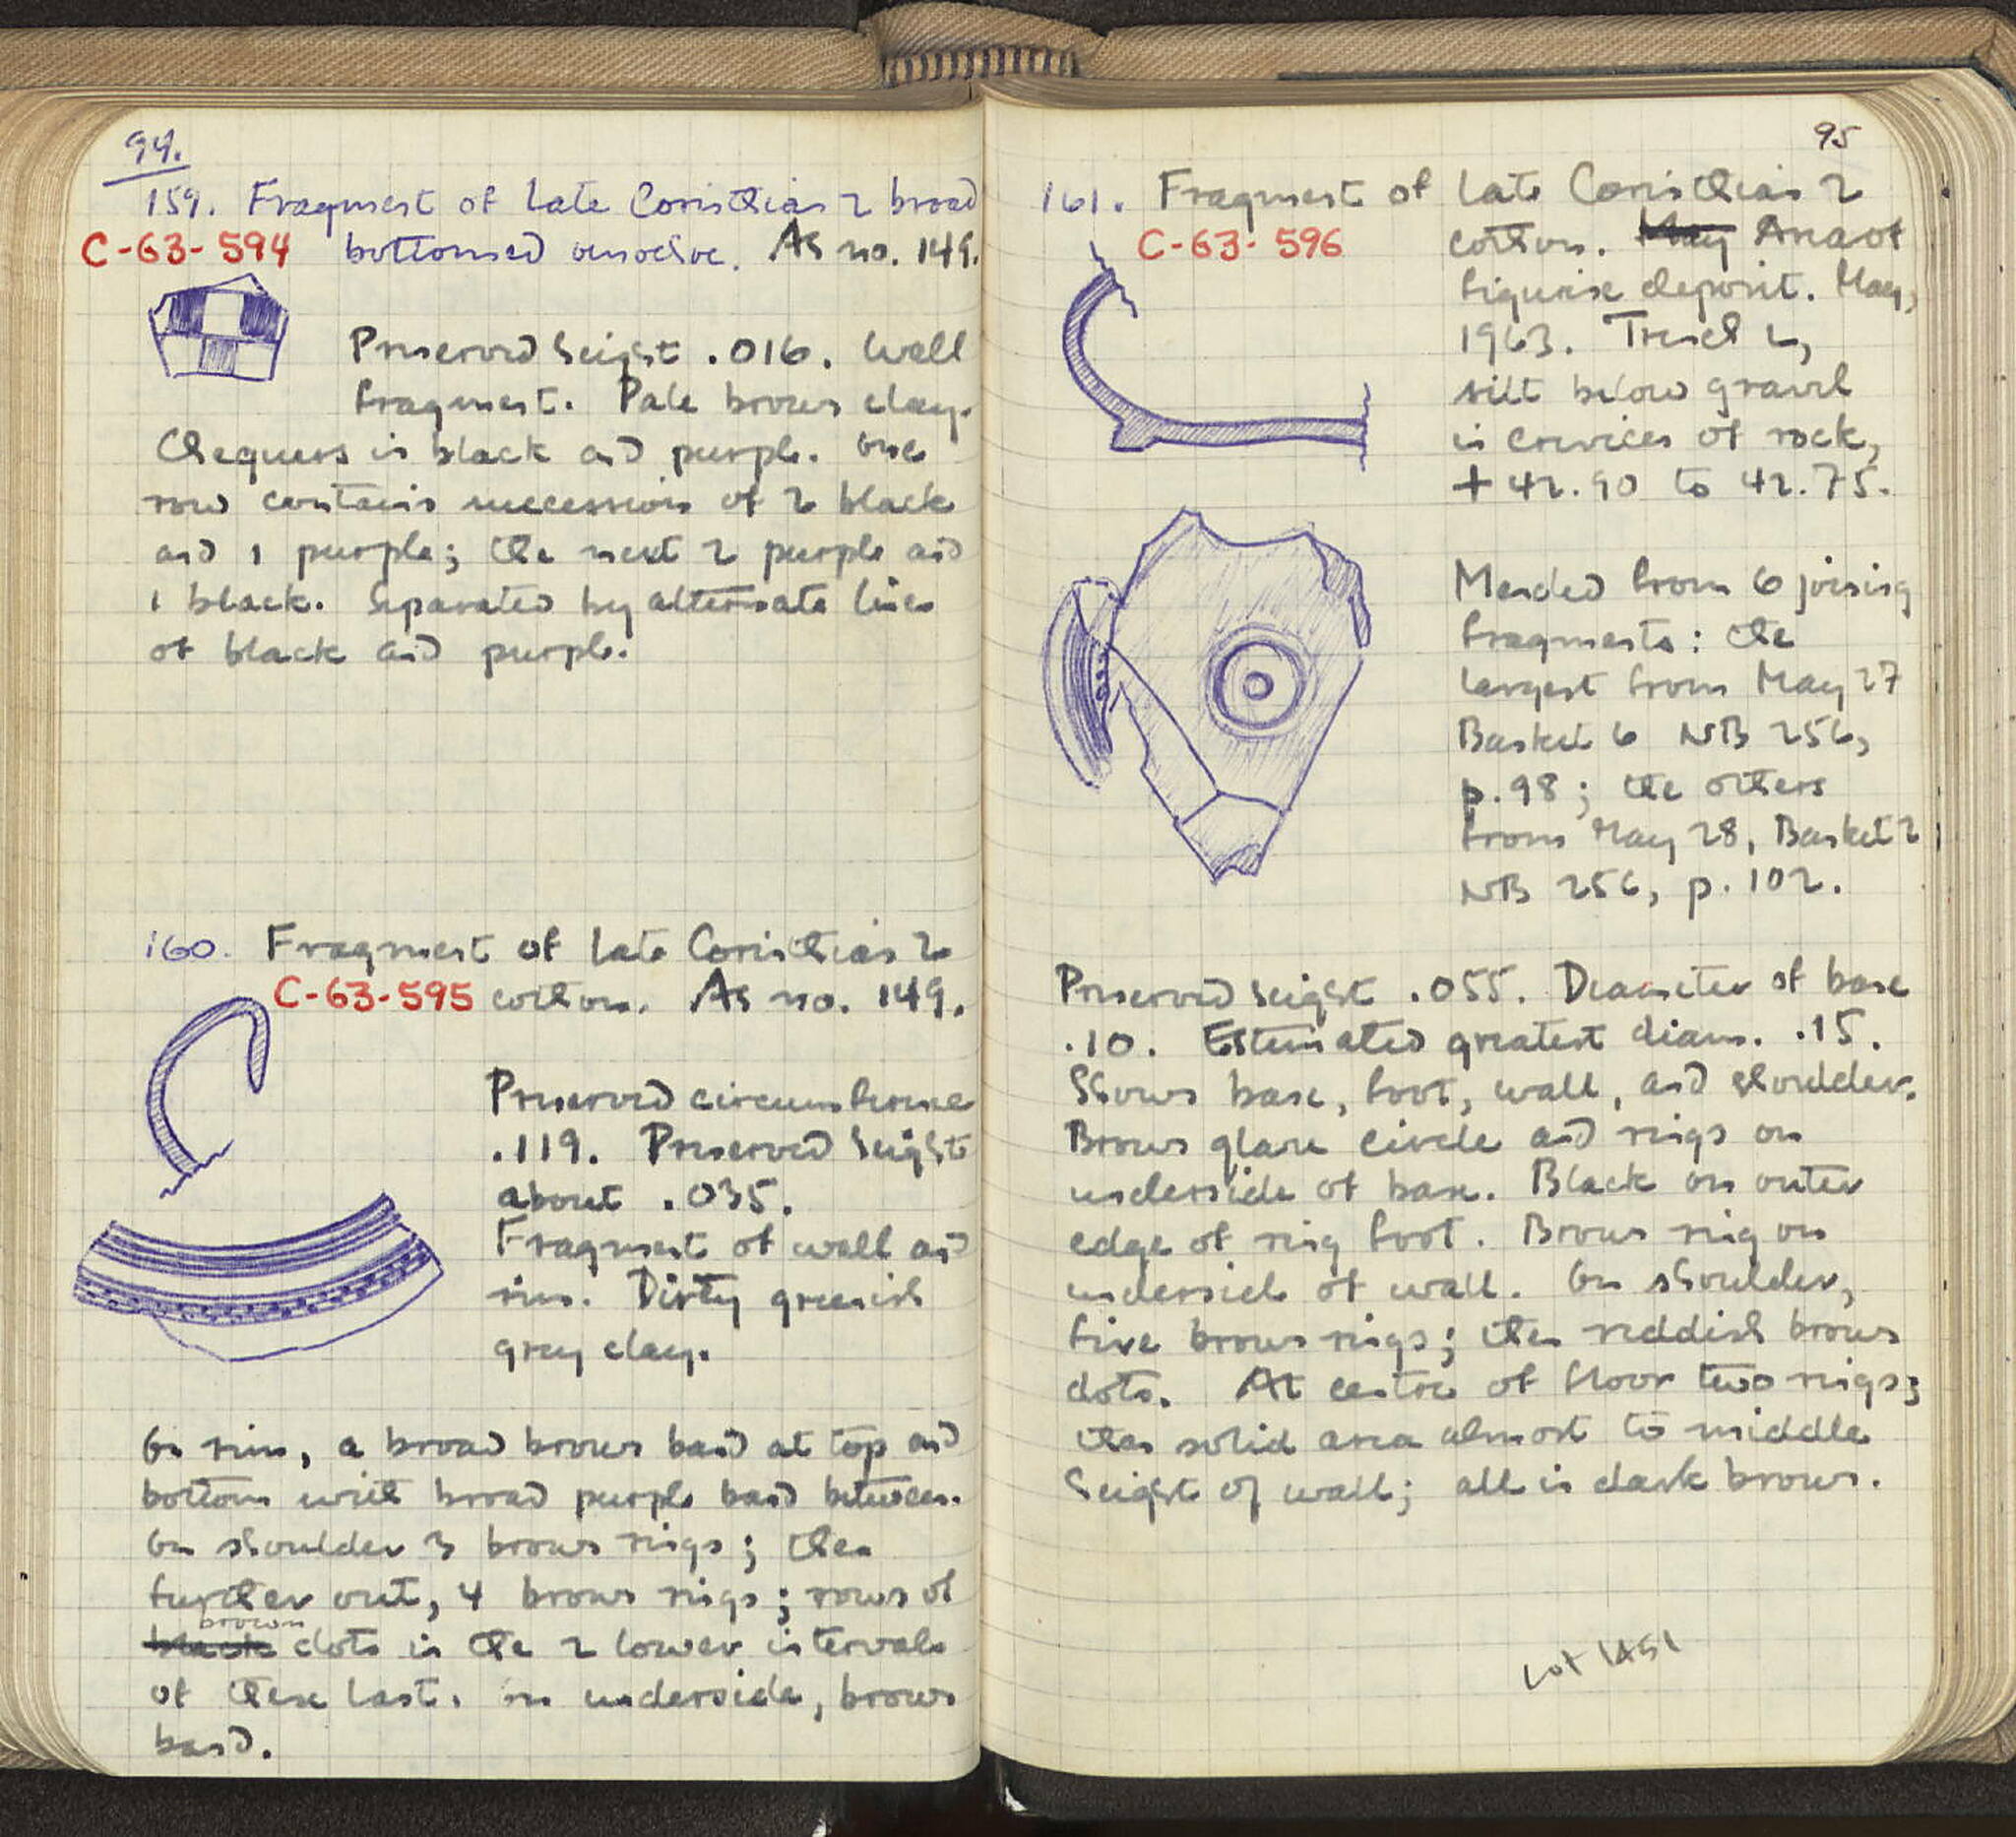 94.
159. Fragment of Late Corinthian 2 broad
C-63-594 bottomed oinochoe. As no. 149.
Preserved height .016. Wall
fragment. Pale brown clay.
Chequers in black and purple. One
row contains succession of 2 black
and 1 purple; the next 2 purple and
1 black. Separated by alternate lines
of black and purple.
160. Fragment of Late Corinthian 2
C-63-595 cothon. As no. 149.
Preserved circumference
.119. Preserved height
about .035.
Fragment of wall and
rim. Dirty greenish
grey clay.
On rim, a broad brown band at top and
bottom with broad purple band between.
On shoulder 3 brown rings; then
further out, 4 brown rings; rows of
brown
black dots in the 2 lower intervals
of these last. On underside, brown
band.
95
161. Fragment of Late Corinthian 2
C-63-596 cothon. May Area of
figurine deposit. May,
1963. Trench L,
silt below gravel
in crevices of rock,
+42.90 to 42.75.
Mended from 6 joining
fragments: the
largest from May 27
Basket 6 NB 256,
p.98; the others
from May 28, Basket 2
NB 256, p.102.
Preserved height .055. Diameter of base
.10. Estimated greatest diam. .15.
Shows base, foot, wall, and shoulder.
Brown glaze circle and rings on
underside of base. Black on outer
edge of ring foot. Brown ring on
underside of wall. On shoulder,
five brown rings; then reddish brown
dots. At centre of floor two rings;
then solid area almost to middle
height of wall; all in dark brown.
Lot 1951